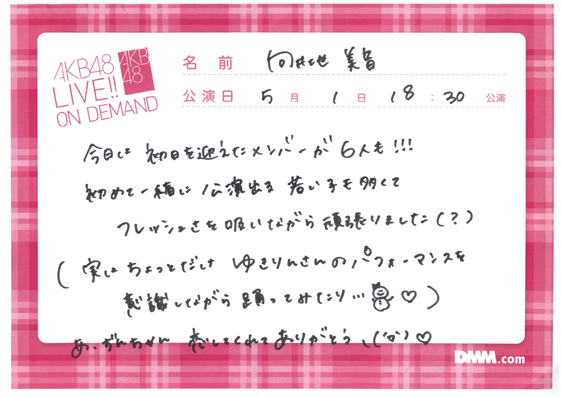 AKB48
LIVE!!
ON DEMAND
AKB
48
名 前 向井地 美音
公演日 5 月 1 日 18 : 30 公演
今日は 初日を迎えたメンバーが 6人も!!!
初めて一緒に 公演出る 若い子も多くて
フレッシュさを吸いながら頑張りました(?)
(実はちょっとだけ ゆきりんさんのパフォーマンスを
意識しながら 踊ってみたり…♡)
あ、ずんちゃん 恋してくれてありがとう ♡
DMM.com